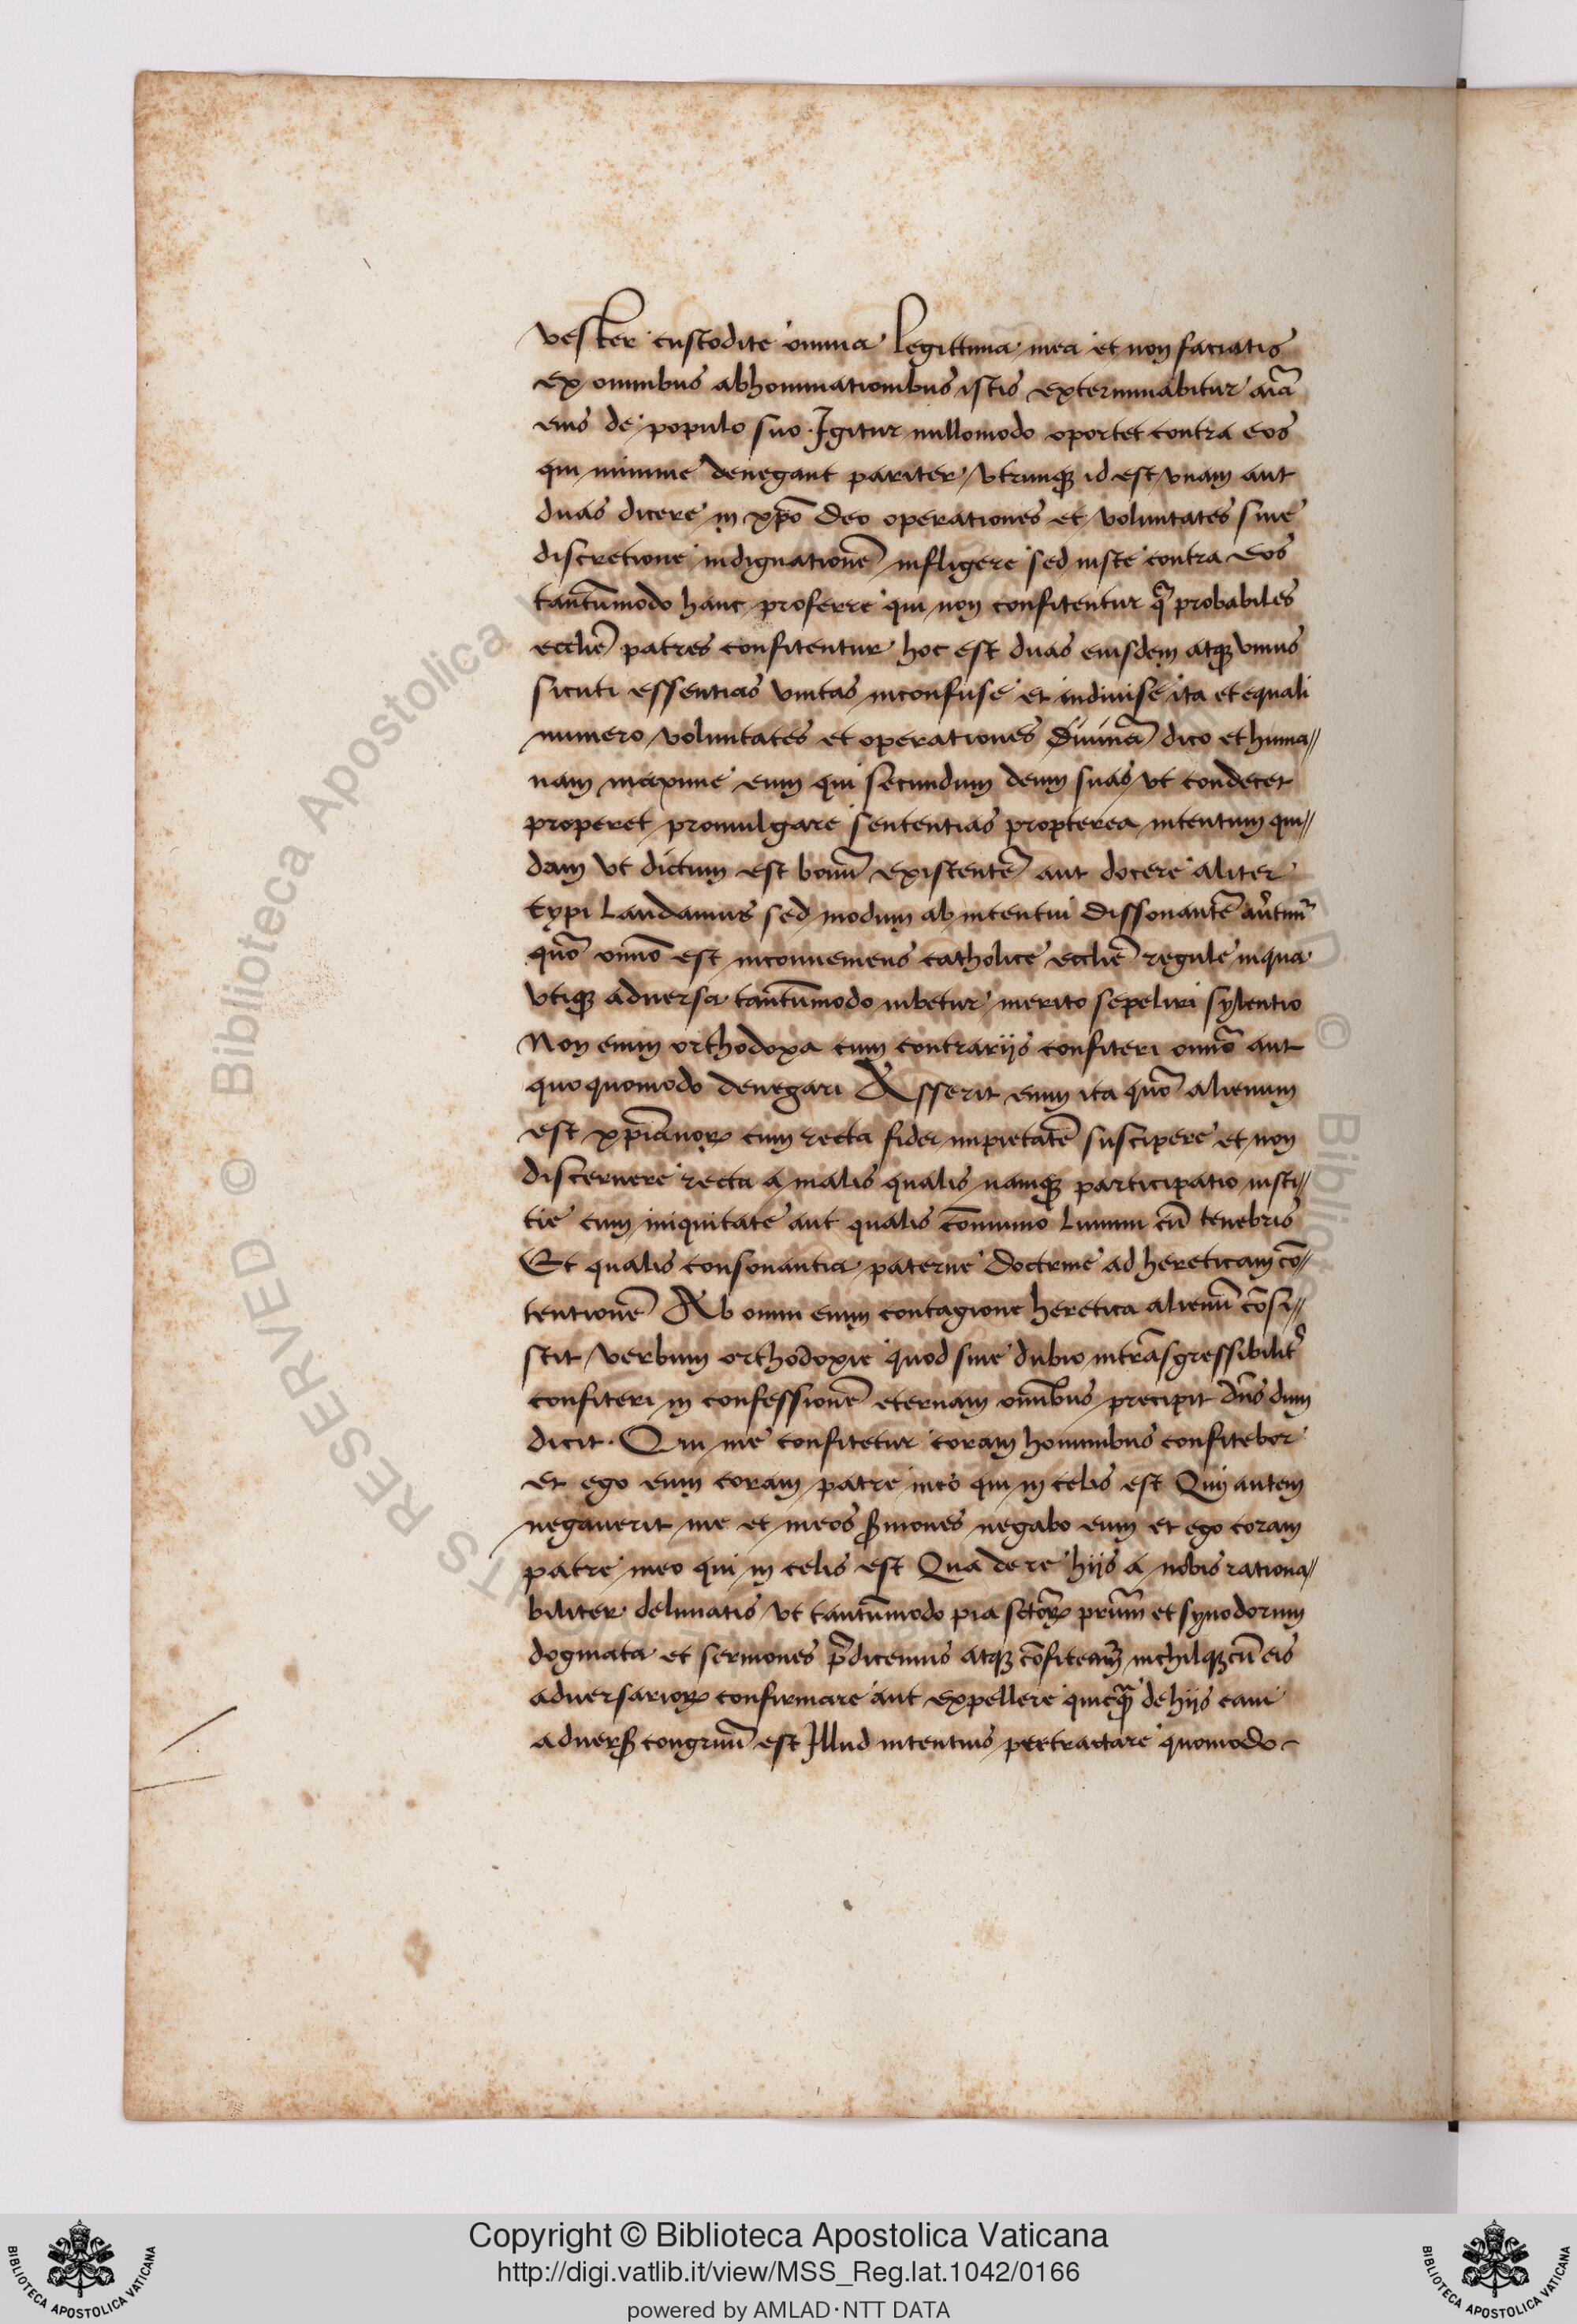 vester custodite omnia Legittima mea et non faciatis
ex omnibus abhominationibus istis exterminabitur aĩa
eius de populo suo. Igitur nullomodo oportet contra eos
qui minime denegant pariter vtrunqꝫ id est vnam aut
duas dicere in xpõ deo operationes et voluntates sine
discretione indignationẽ infligere sed iuste contra eos
tantũmodo hanc proferre qui non confitentur q̃ probabiles
ecclie͂ patres confitentur hoc est duas eiusdem atqꝫ vnius
sicuti essentias vnitas inconfuse et indiuise ita et equali
numero voluntates et operationes diuinã dico et huma//
nam maxime eum qui secundum deum suas vt condecet
properet promulgare sententias propterea intentum qui//
dam vt dictum est bonũ existentẽ aut docere aliter
typi Laudamus sed modum ab intentui dissonantẽ
quõ omnõ est inconueniens catholice ecclie͂ regule in qua
vtiqꝫ aduersa tantũmodo iubetur merito sepeliri sylentio
Non enim orthodoxa cum contrarijs confiteri omnõ aut
quoquomodo denegari Asserit enim ita quõ alienum
est xp̃ianoꝝ cum recta fidei impietatẽ suscipere et non
discernere recta a malis qualis namqꝫ participatio iusti//
tie cum iniquitate aut qualis cõmunio Lumini cũ tenebris
Et qualis consonantia paterne doctrine ad hereticam cõ//
tentionẽ Ab omni enim contagione heretica alienũ cõsi//
stit verbum orthodoxie quod sine dubio intrãsgressibilit̉
confiteri in confessionẽ eternam omĩbus precipit dñs dum
dicit. Qui me confitetur coram hominibus confitebor
et ego eum coram patre meo qui in celis est Qui autem
negauerit me et meos ꝼmones negabo eum et ego coram
patre meo qui in celis est Qua de re hijs a nobis rationa//
biliter delimatis vt tantũmodo pia sctõꝝ prũm et synodorum
dogmata et sermones p̃dicemus atqꝫ cõfiteam̃ nichilqꝫ cũ eis
aduersarioꝝ confirmare aut expellere quicq̃ de hijs eam
congruũ est Illud intentius pertractare quomodo